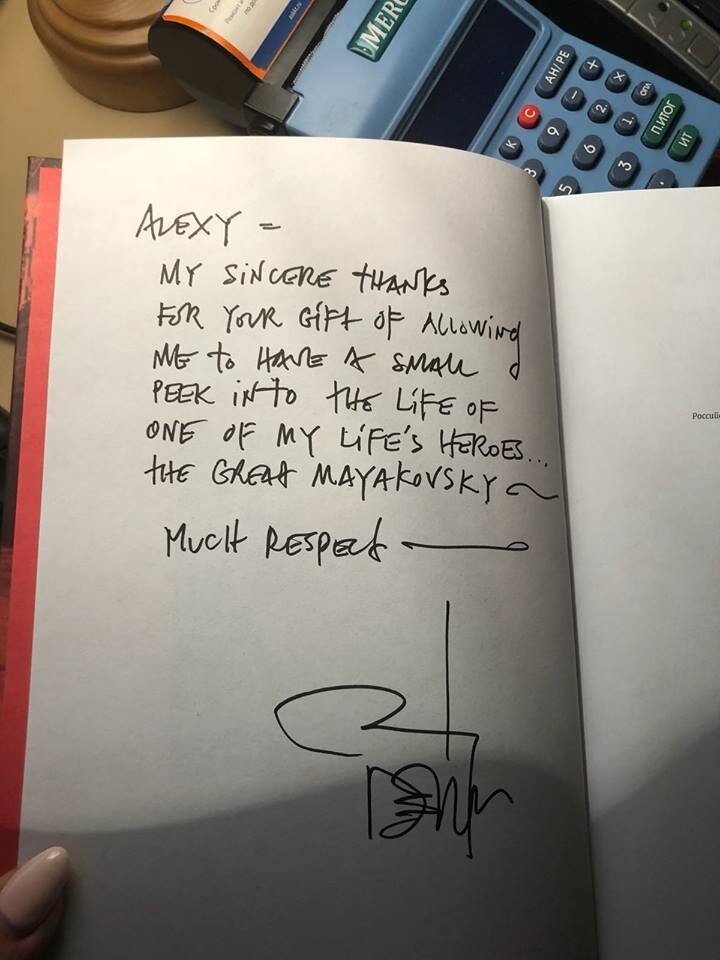 MERC
АН/РЕ
+
X
-
C
K
9
6
3
2
1
5
П.ИТОГ
ИТ
ALEXY =
MY SINCERE THANKS
FOR YOUR GIFT OF ALLOWING
ME TO HAVE A SMALL
PEEK INTO THE LIFE OF
ONE OF MY LIFE'S HEROES...
THE GREAT MAYAKOVSKY ~
MUCH RESPECT —